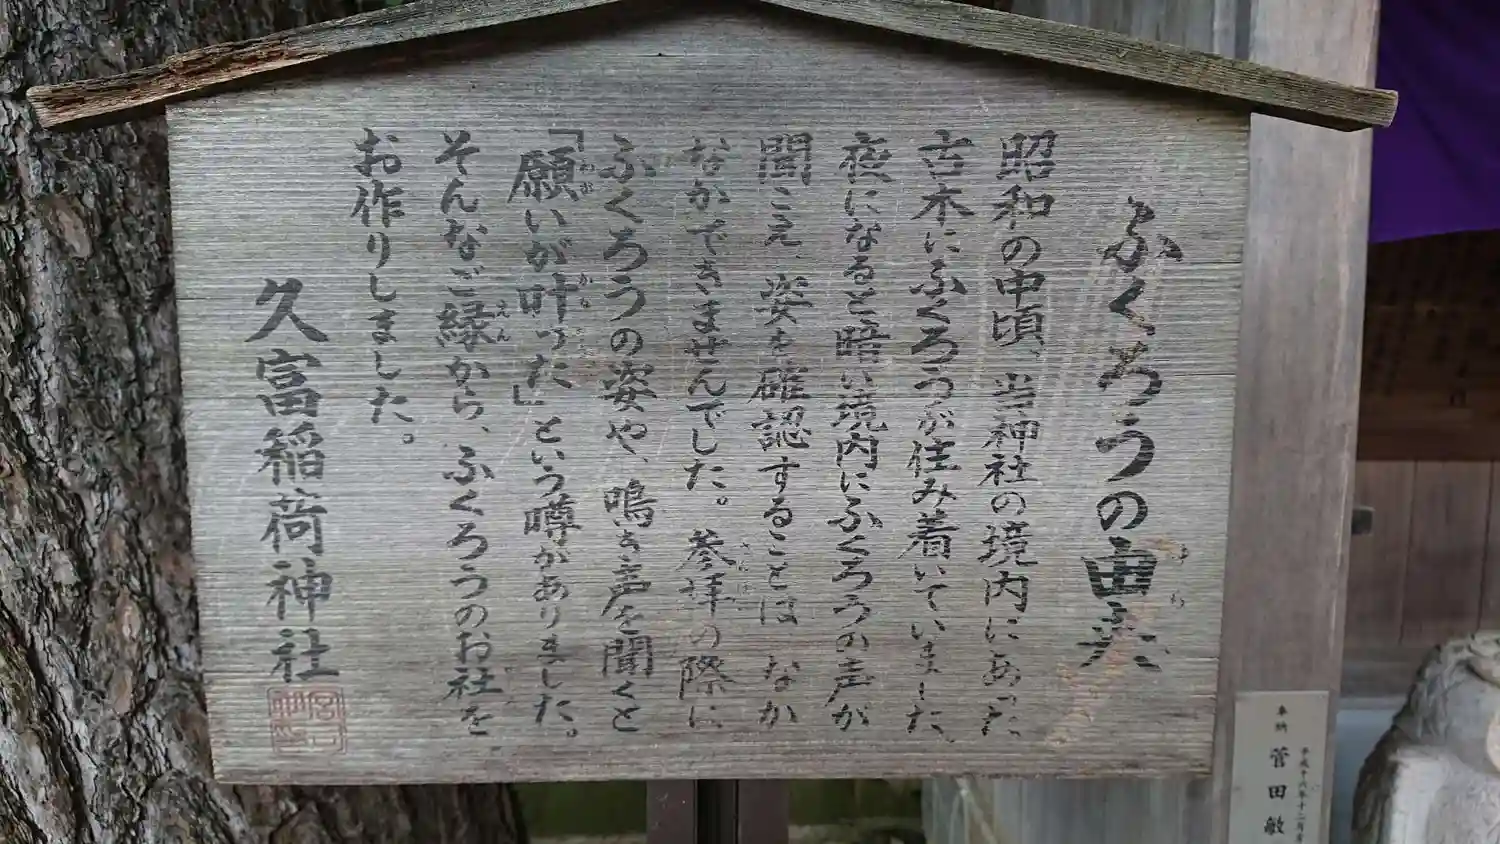 ふくろうの由来
昭和の中頃、当神社の境内にあった
古木にふくろうが住み着いていました。
夜になると暗い境内にふくろうの声が
聞こえ、姿を確認することは なか
なかできませんでした。参拝の際に
ふくろうの姿や、鳴き声を聞くと
「願いが叶った」という噂がありました。
そんなご縁から、ふくろうのお社を
お作りしました。
久富稲荷神社
奉納 菅田敏